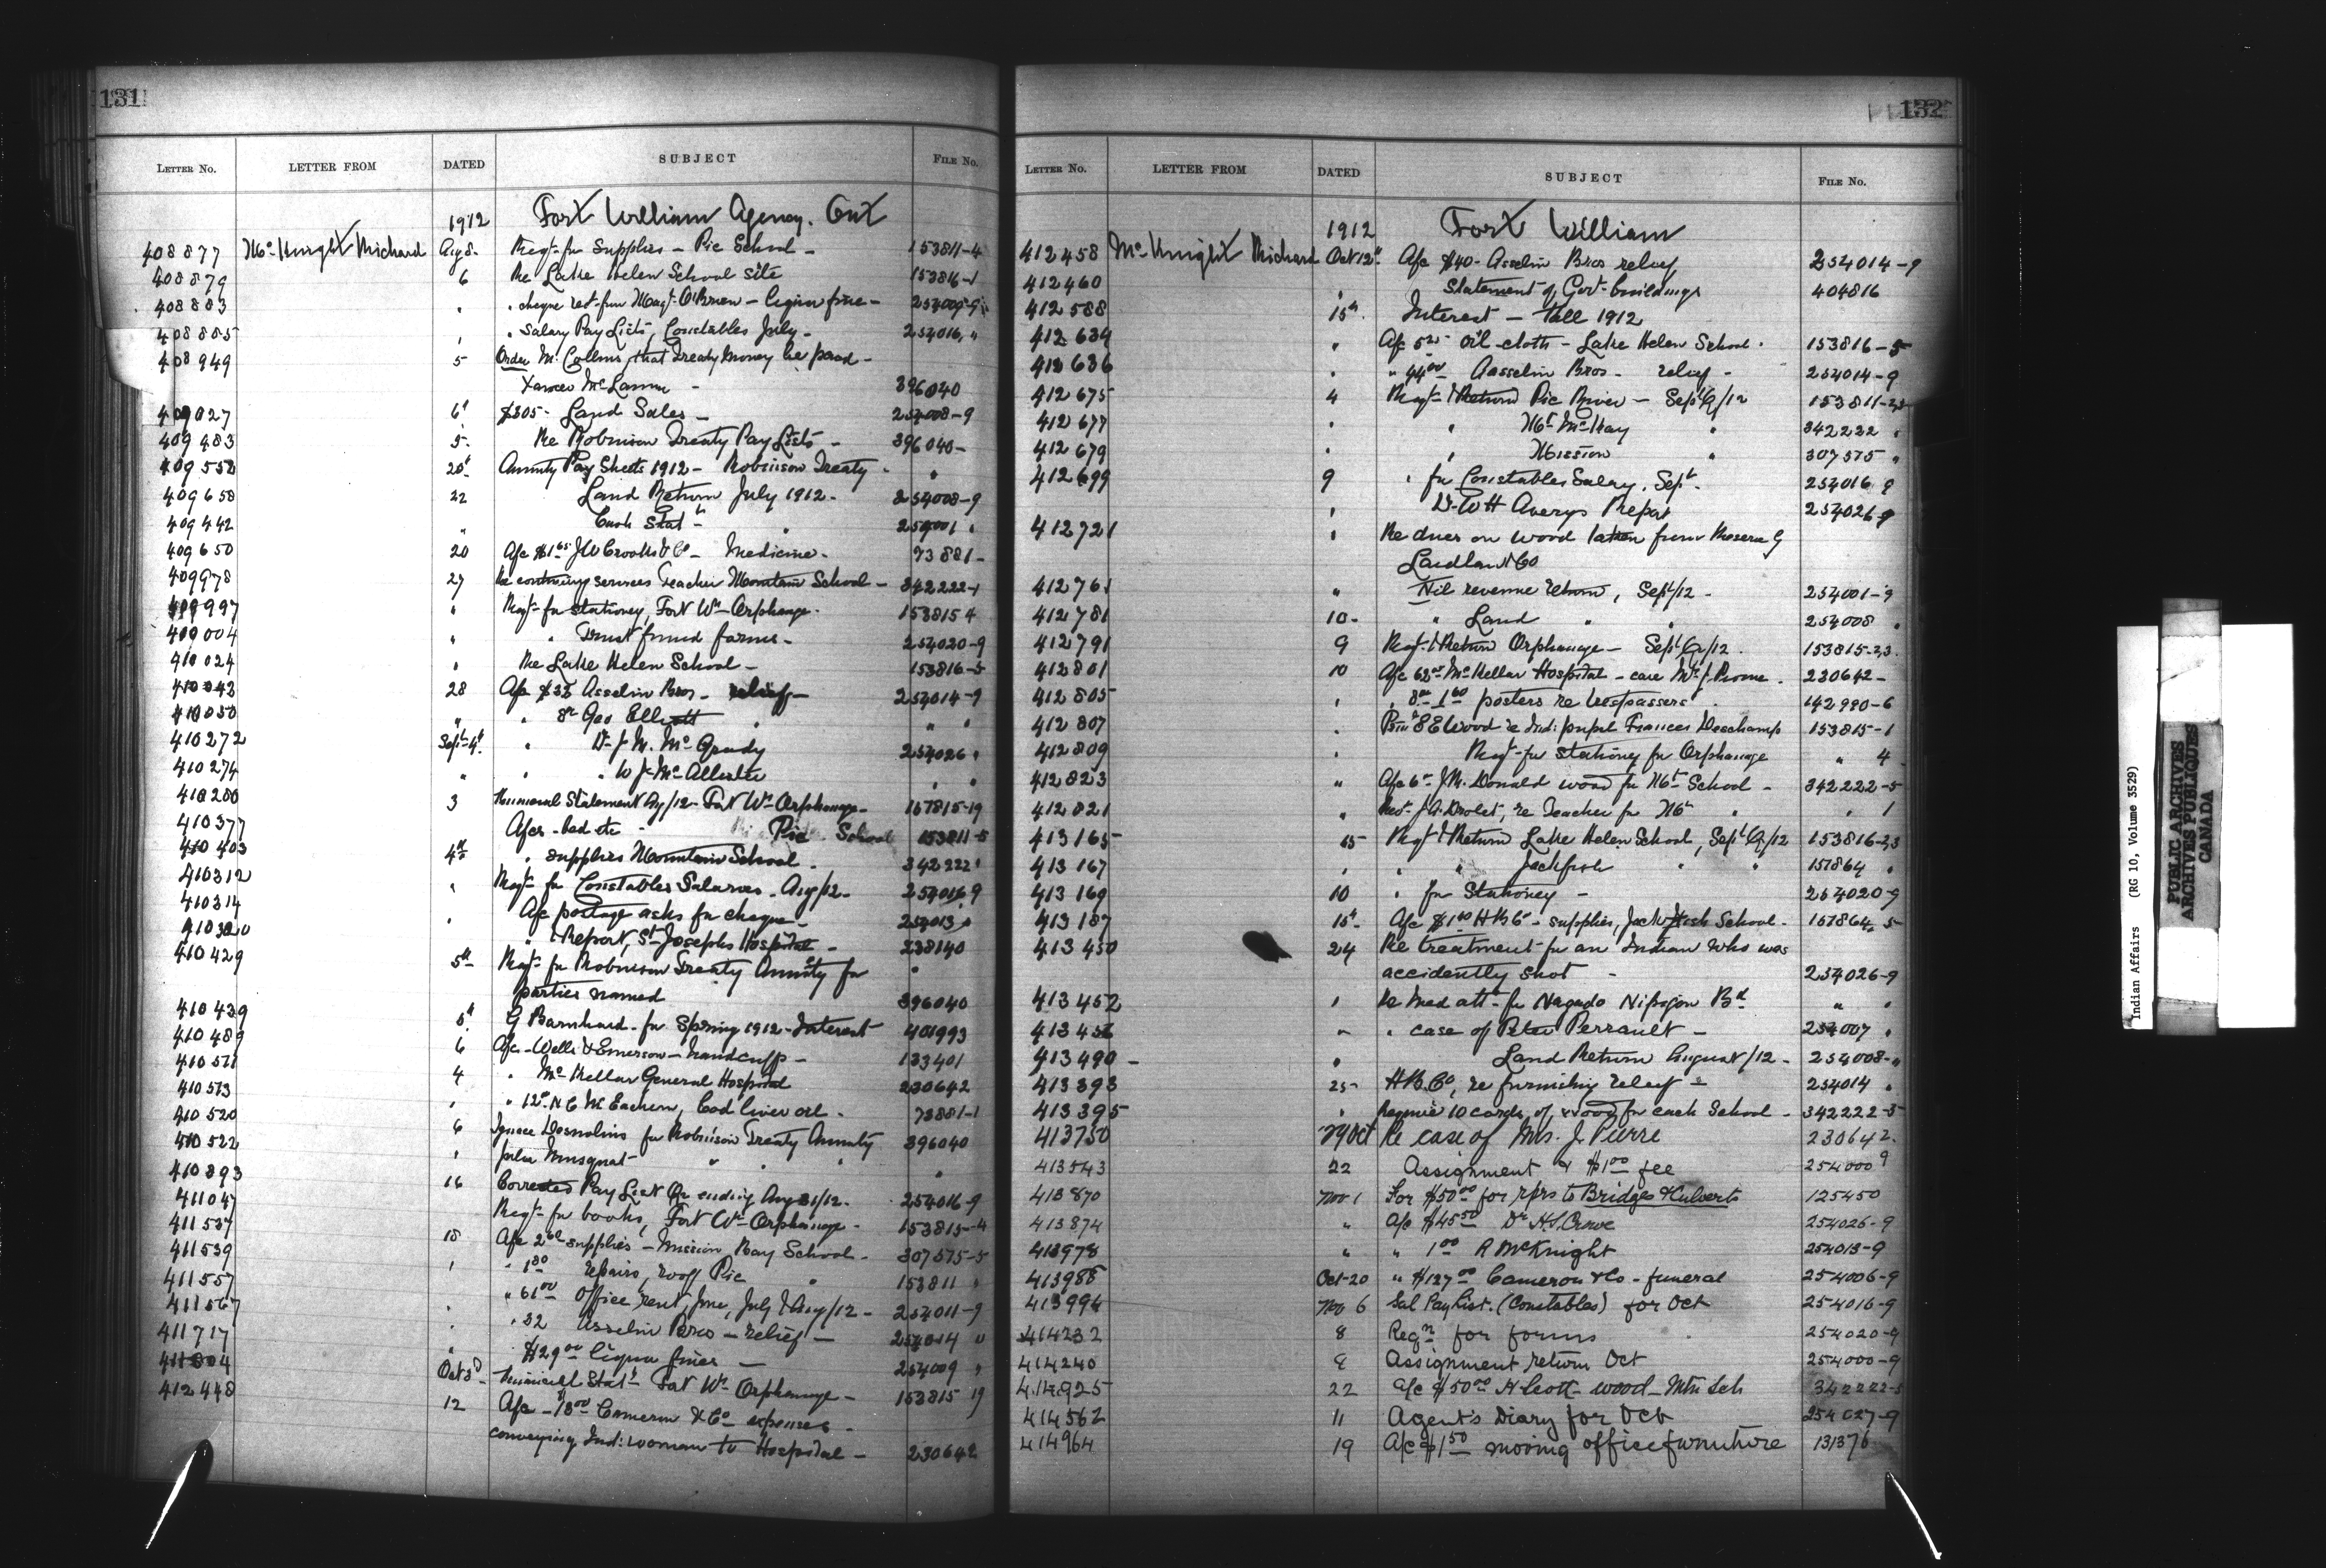 131
LETTER No. LETTER FROM DATED SUBJECT FILE No.
1912 Fort William Agency. Ont
408877 McKnight Richard Aug 8 Reqt for Supplies - Pic School - 153811-4
408879 6 Re Lake Helen School site 153816-1
408883 " " cheque rect from Magt O'Brien - liquor fine - 254009-9
408885 " " Salary Pay Lists, Constables July - 254016 "
408949 5 Order Mc Collins, that Treaty Money be paid -
396040
409027 6 $305 - Land Sales - 254008-9
409483 5 Re Robinson Treaty Pay Lists - 396040-
409552 20 Annuity Pay Sheets 1912 - Robinson Treaty - "
409658 22 Land Return July 1912 - 254008-9
409442 " Cash Stat - " 254001 "
409650 20 A/c $1.65 J W Crooks & Co - Medicine - 73881-
409978 27 Re continuing services Teacher Mountain School - 342222-1
409997 " Reqt for stationery, Fort Wm Orphanage - 153815 4
409004 " " Trust fund forms - 254020-9
410024 " Re Lake Helen School - 153816-5
410043 28 A/c $32 Asselin Bros - relief - 254014-9
410050 " " 8 Geo Elliott " " "
410272 Sept 4 " Dr J. M. McGrady 254026 "
410274 " " " W J. McAllister " "
410280 3 Numeral Statement Ag/12 - Fort Wm Orphanage - 157815-19
410377 A/cs - bed etc - Pic School 153811-5
410403 4th " supplies Mountain School 342222 "
410312 " Reqt for Constables Salaries - Aug/12 - 254016 9
410314 " A/c postage asks for cheque - 254013 "
410320 " & Report, St Josephs Hospital - 238140
410429 5th Reqt for Robinson Treaty Annuity for
parties named 396040
410439 5th G Barnhard - for Spring 1912 - Interest 401993
410489 6 A/c - Wells & Emerson - handcuffs - 133401
410511 4 " McKellar General Hospital 230642
410513 " " 12 N C McEachern, Cod liver oil - 73881-1
410520 6 Ignace Desmoulins for Robinson Treaty Annuity 396040
410522 " Julia Musquat " " " "
410893 16 Corrected Pay List Qr ending Aug 31/12 - 254016-9
411047 Reqt for books, Fort Wm Orphanage - 153815-4
411537 18 A/c supplies - Mission Bay School - 307575-5
411539 " " 1.80 repairs, roof Pic " 153811 "
411557 " 61.00 Office rent, June, July & Aug/12 - 254011-9
411567 " " 32 Asselin Bros - relief - 254014 "
411717 " $29.00 liquor fines - 254009 "
411804 Oct 3d Numerical Stat - Fort Wm Orphanage - 153815 19
412448 12 A/c - 18.00 Cameron & Co expenses -
conveying Ind: woman to Hospital - 230642
132
LETTER No. LETTER FROM DATED SUBJECT FILE No.
1912 Fort William
412458 McKnight Richard Oct 12th A/c $40 - Asselin Bros relief 254014-9
412460 " Statement of Govt buildings 404816
412588 15th Interest - fall 1912
412634 " A/c oil-cloth - Lake Helen School " 153816-5
412636 " " 44.00 Aasselin Bros - relief - 254014-9
412675 4 Reqt & Return Pic River - Sept Q/12 153811-2,3
412677 " " Mt McKay " 342222 "
412679 " " Mission " 307575 "
412699 9 " for Constables Salary, Sept 254016 9
" Dr W H Averys Report 254026-9
412721 " Re dues on wood taken from Reserve by
412761 " Nil revenue return, Sept/12 - 254001-9
412781 10 - " Land " " 254008 "
412791 9 Reqt & Return Orphanage - Sept Q/12 153815-2,3
412801 10 A/c McKellar Hospital - care 230642-
412805 " " posters re trespassers " 142990-6
412807 " S E Wood re Ind: pupil Frances Deschamp 153815-1
412809 " Reqt for stationery for Orphanage " 4
412823 " A/c 6 J McDonald wood for Mt School - 342222-5
412821 " Revt J A Drolet, re Teacher for Mt " " 1
413165 15 Reqt & Return Lake Helen School, Sept Q/12 153816-2,3
413167 " " " Jackfish " " 157864 "
413169 10 " for Stationery - 254020-9
413187 15th A/c H B Co - supplies, Jack Fish School - 157864-5
413450 24 Re treatment for an Indian who was
accidently shot - 254026-9
413452 " Re Med att - for Nagado Nipigon Bd " "
413456 " " case of Peter Perrault - 254007 "
413490 - " Land Return August/12 - 254008-"
413393 25 - H.B.Co, re furnishing relief - 254014 "
413395 " Require 10 cords of wood for each School - 342222-5
413750 29 Oct Re case of Mrs. J. Pierre 230642-
413543 22 Assignment & $1.00 fee 254000 9
413870 Nov 1 For $50.00 for rprs to Bridges & Culverts 125450
413874 " A/c $45.50 Dr H.S. Crowe 254026-9
413978 " " 1.00 R McKnight 254013-9
413988 Oct-20 " $127.00 Cameron & Co - funeral 254006-9
413996 Nov 6 Sal Pay List. (Constables) for Oct 254016-9
414232 8 Reqn for forms 254020-9
414240 8 Assignment return Oct 254000-9
414925 22 A/c $50.00 H Scott - wood - Mtn Sch 342222-5
414562 11 Agent's Diary for Oct 254027-9
414964 19 A/c $1.50 moving office furniture 131376
Indian Affairs (RG 10, Volume 3529)
PUBLIC ARCHIVES
ARCHIVES PUBLIQUES
CANADA